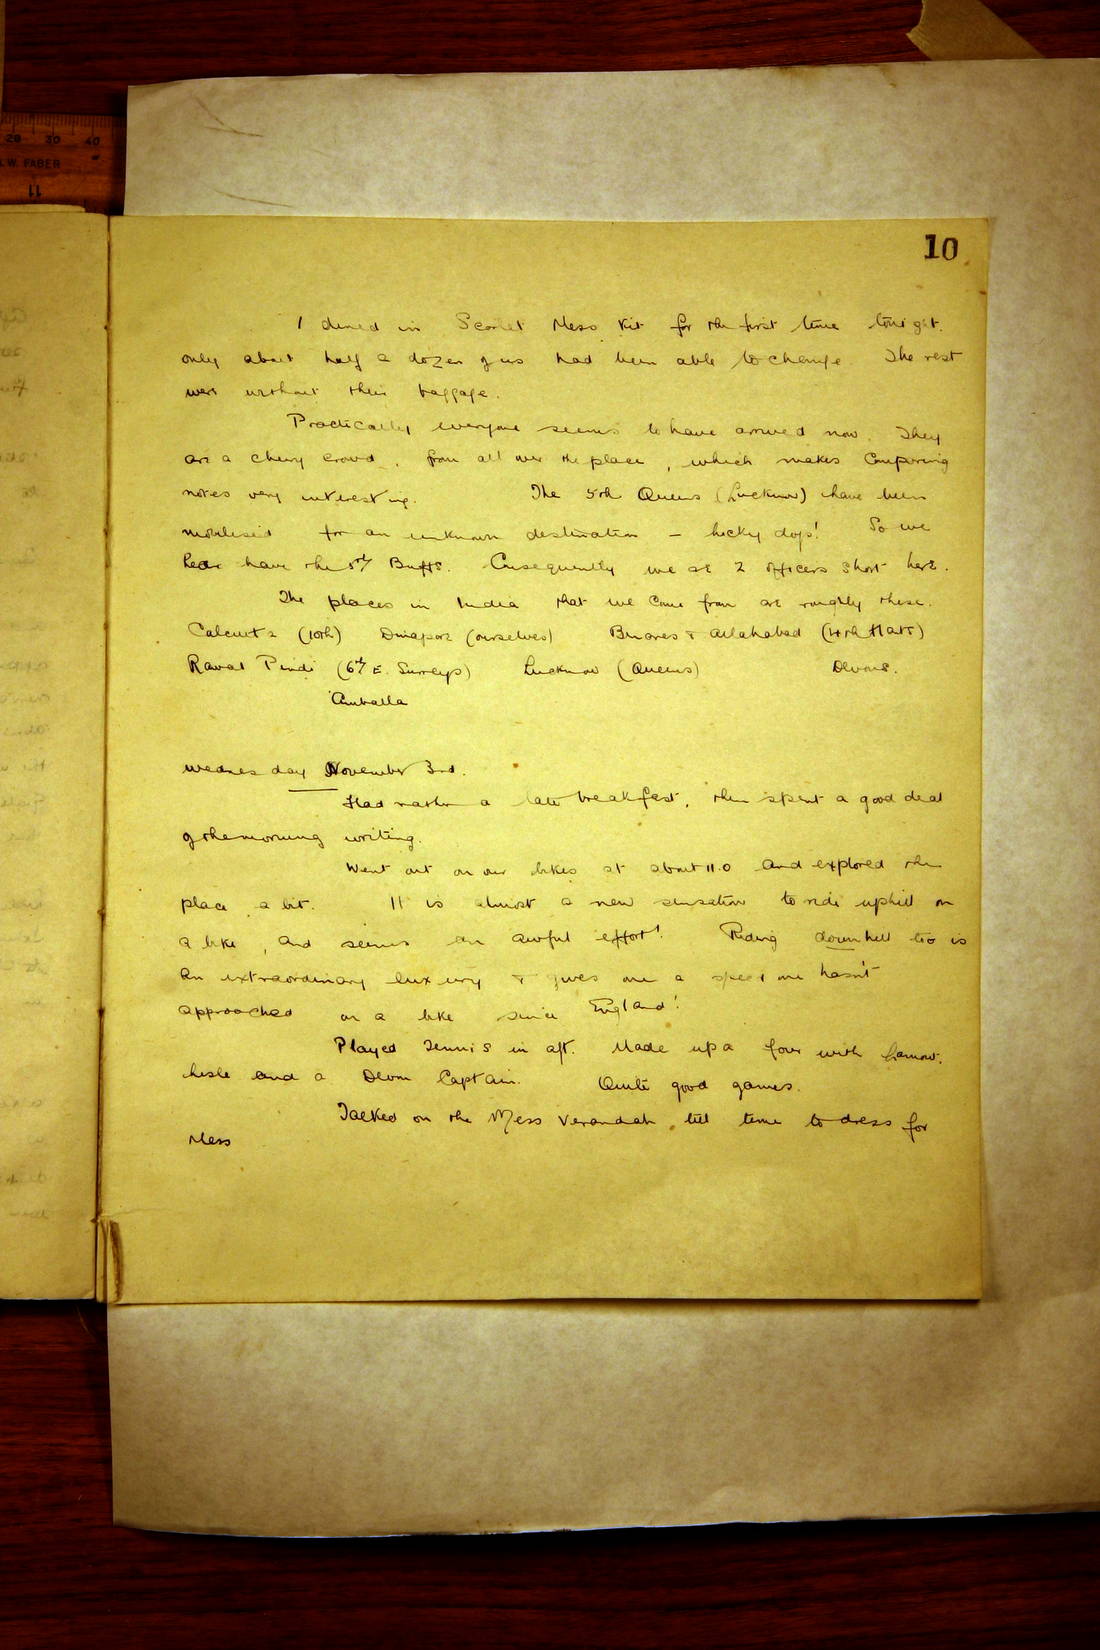 28 30 40
W. FABER
11
10
I dined in Scarlet Mess Kit for the first time tonight.
only about half a dozen of us had been able to change. The rest
were without their baggage.
Practically everyone seems to have arrived now. They
are a cheery crowd, from all over the place, which makes comparing
notes very interesting. The 5th Queens (Lucknow) have been
mobilised for an unknown destination – lucky dogs! So we
have the 5th Buffs. Consequently we are 2 officers short here.
The places in India that we come from are roughly these.
Calcutta (10th) Dinapore (ourselves) Benares & Allahabad (4th Hants)
Rawal Pindi (6th E. Surreys) Lucknow (Queens) Devons.
Umballa
Wednesday November 3rd.
Had rather a late breakfast, then spent a good deal
of the morning writing.
Went out on our bikes at about 11.0 and explored the
place a bit. It is almost a new sensation to ride uphill on
a bike, and seems an awful effort! Riding downhill too is
an extraordinary luxury & gives one a speed one hasn't
approached on a bike since England!
Played Tennis in aft. Made up a four with
and a Devon Captain. Quite good games.
Talked on the Mess Verandah till time to dress for
Mess